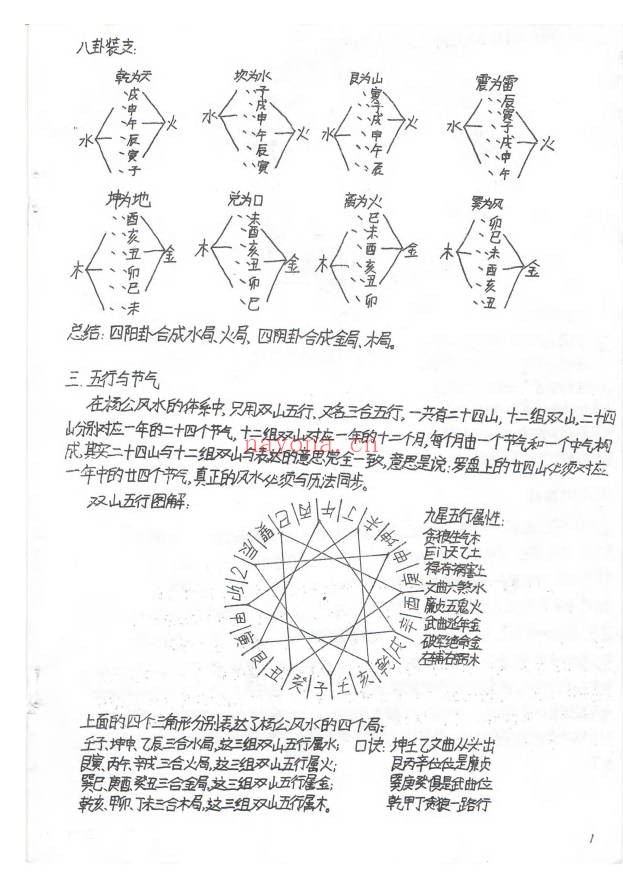 八卦装支:
乾为天
戌
申
午
辰
寅
子
水
火
坎为水
子
戌
申
午
辰
寅
水
火
艮为山
寅
子
戌
申
午
辰
水
火
震为雷
辰
寅
子
戌
申
午
水
火
坤为地
酉
亥
丑
卯
巳
未
木
金
兑为口
未
酉
亥
丑
卯
巳
木
金
离为火
巳
未
酉
亥
丑
卯
木
金
巽为风
卯
巳
未
酉
亥
丑
木
金
总结:四阳卦合成水局、火局、四阴卦合成金局、木局。
三.五行与节气
在杨公风水的体系中,只用双山五行、又名三合五行,一共有二十四山,十二组双山,二十四
山分别对应一年的二十四个节气,十二组双山对应一年的十二个月,每个月由一个节气和一个中气构
成,其实二十四山与十二组双山与表达的意思完全一致,意思是说:罗盘上的廿四山必须对应
一年中的廿四个节气,真正的风水必须与历法同步。
nayona.cn
双山五行图解:
丙午丁未坤申庚酉辛戌乾亥壬子癸丑艮寅甲卯乙辰巽巳
九星五行属性:
贪狼生气木
巨门天乙土
禄存祸害土
文曲六煞水
廉贞五鬼火
武曲延年金
破军绝命金
左辅右弼木
上面的四个三角形分别表达了杨公风水的四个局:
壬子、坤申、乙辰三合水局,这三组双山五行属水; 口诀:坤壬乙文曲从头出
艮寅、丙午、辛戌三合火局,这三组双山五行属火; 艮丙辛位位是廉贞
巽巳、庚酉、癸丑三合金局,这三组双山五行属金; 巽庚癸俱是武曲位
乾亥、甲卯、丁未三合木局,这三组双山五行属木。 乾甲丁贪狼一路行
1